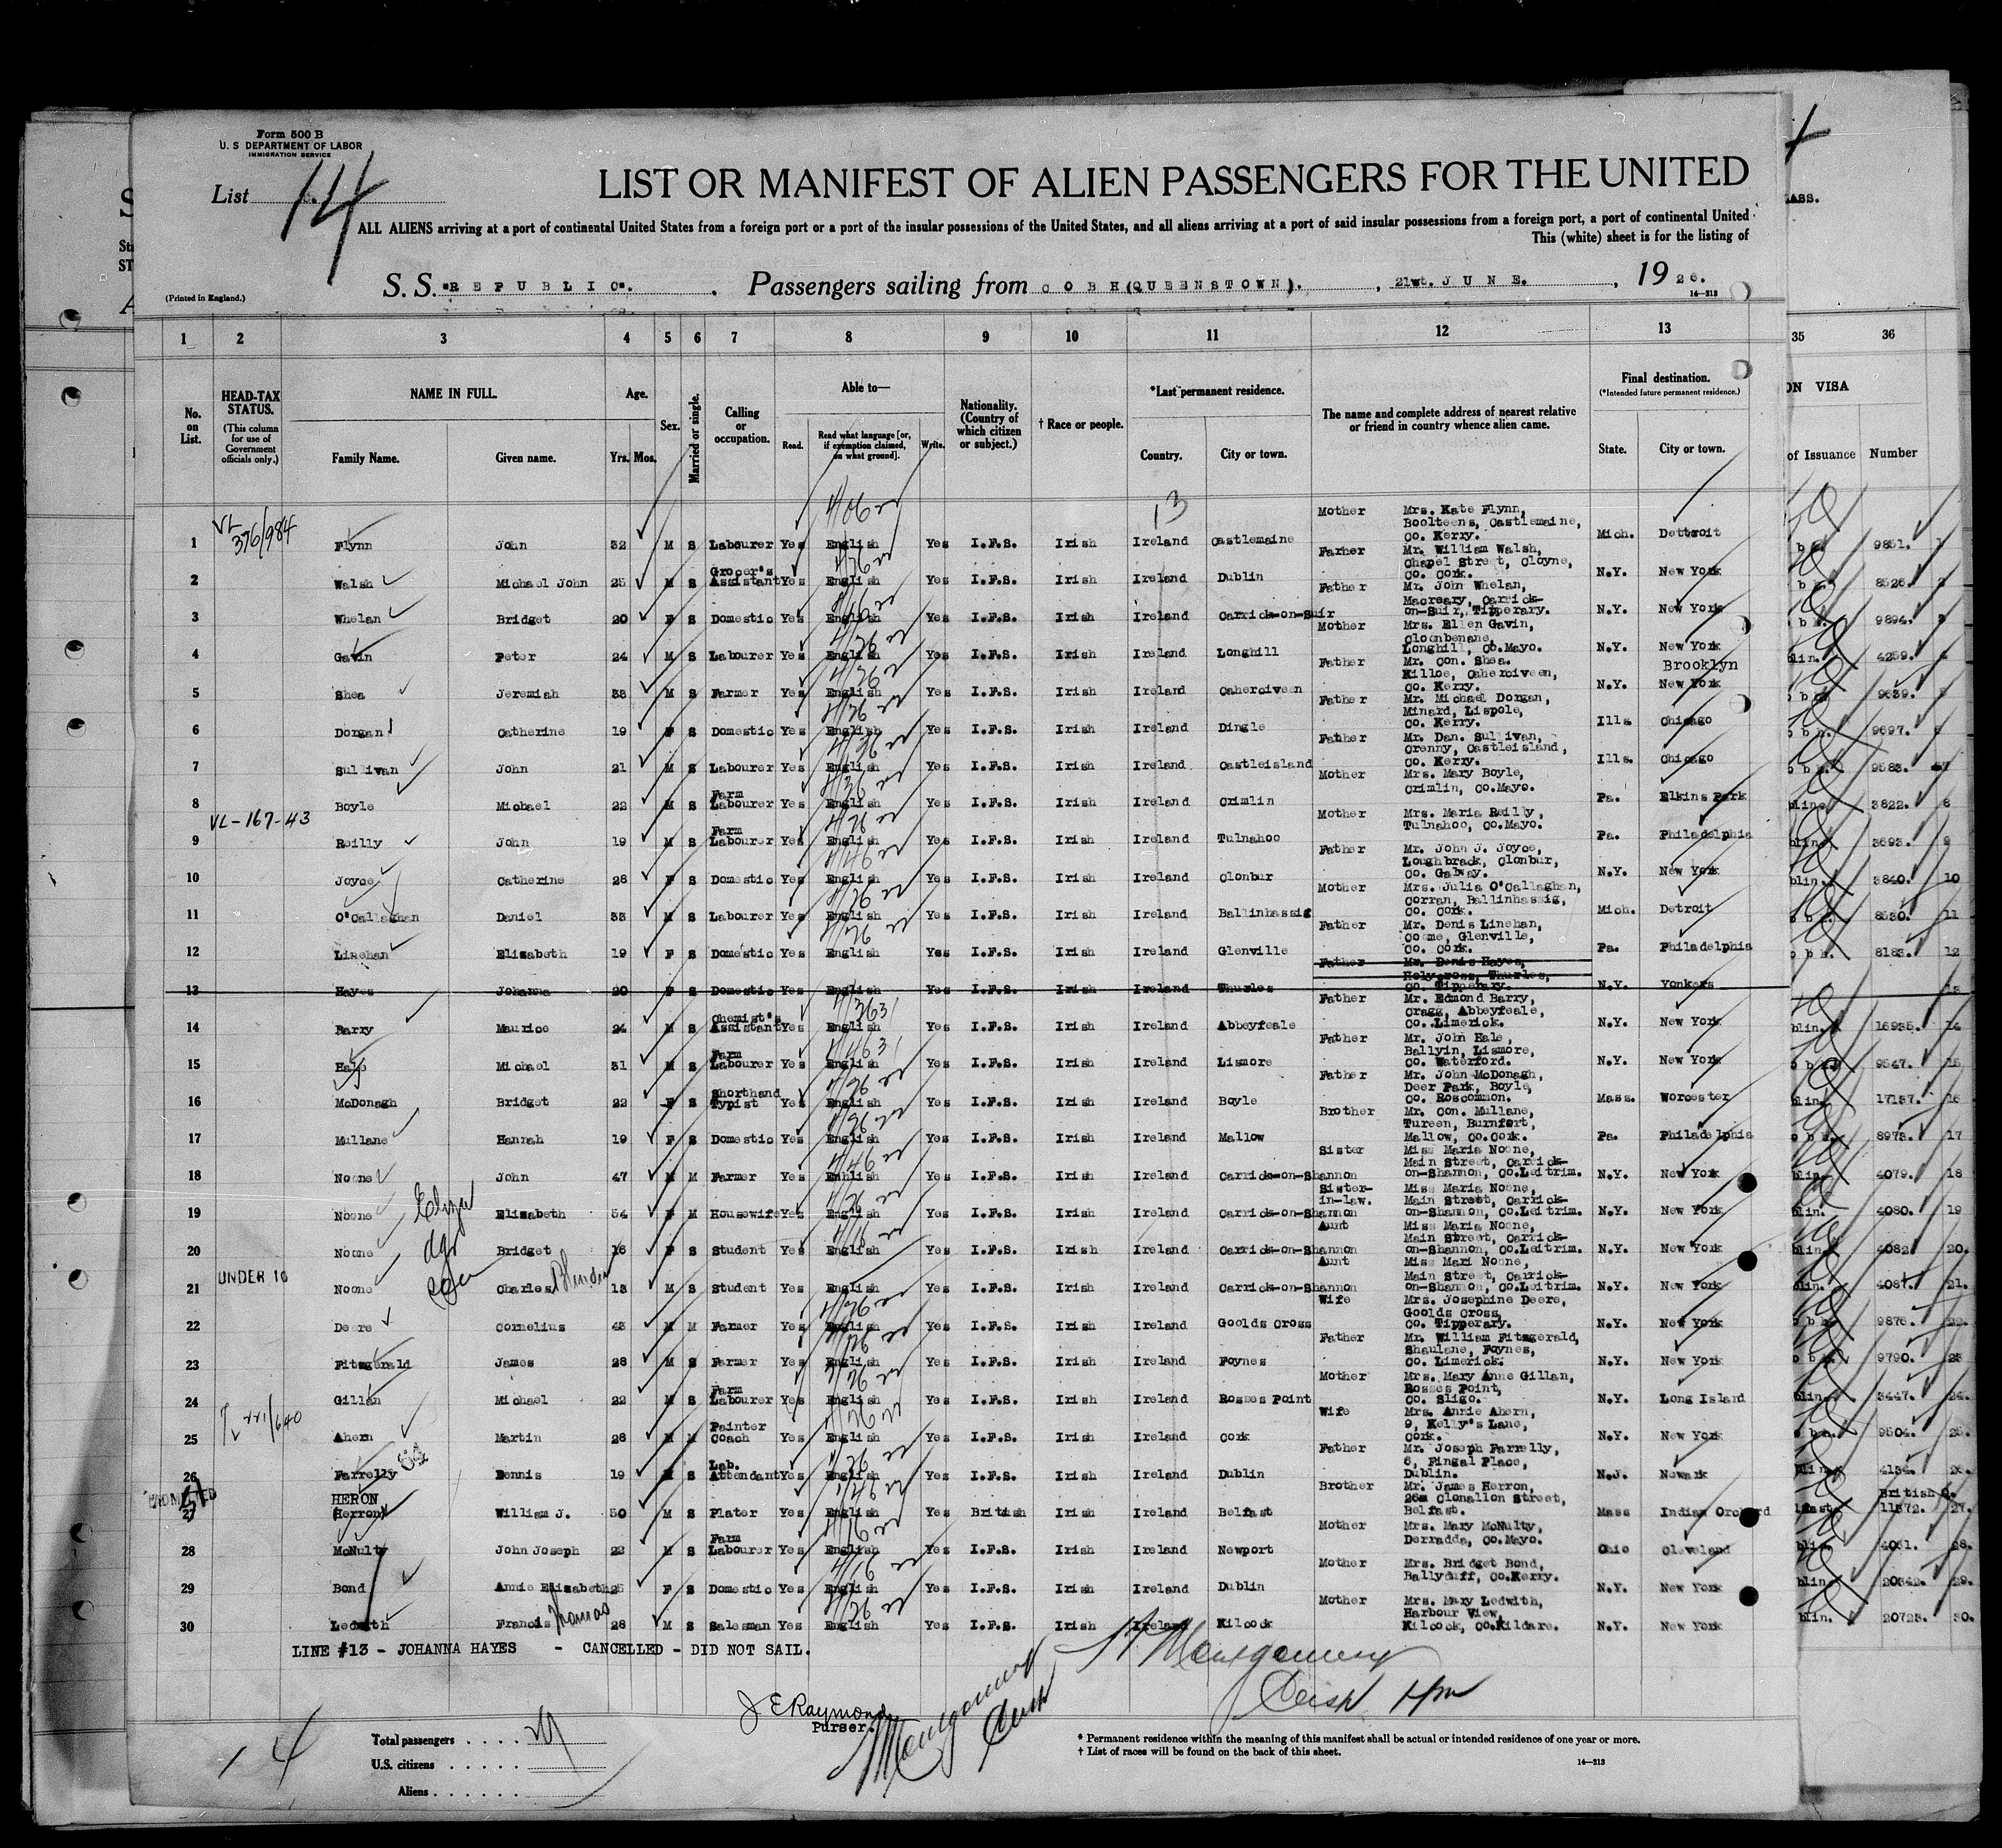 Form 500 B
U. S DEPARTMENT OF LABOR
IMMIGRATION SERVICE
List 14
LIST OR MANIFEST OF ALIEN PASSENGERS FOR THE UNITED
ALL ALIENS arriving at a port of continental United States from a foreign port or a port of the insular possessions of the United States, and all aliens arriving at a port of said insular possessions from a foreign port, a port of continental United
This (white) sheet is for the listing of
(Printed in England.)
S. S. "REPUBLIC". , Passengers sailing from COBH(QUEENSTOWN). , 21st. JUNE. , 1926.
14-213
1 2 3 4 5 6 7 8 9 10 11 12 13 35 36
No. on List. HEAD-TAX STATUS. (This column for use of Government officials only.) NAME IN FULL. Family Name. Given name. Age. Yrs. Mos. Sex. Married or single. Calling or occupation. Able to— Read. Read what language [or, if exemption claimed, on what ground]. Write. Nationality. (Country of which citizen or subject.) † Race or people. *Last permanent residence. Country. City or town. The name and complete address of nearest relative or friend in country whence alien came. Final destination. (*Intended future permanent residence.) State. City or town. ON VISA of Issuance Number
1 VL 376/984 Flynn John 32 M S Labourer Yes English Yes I.F.S. Irish Ireland Castlemaine Mother Mrs. Kate Flynn, Boolteens, Castlemaine, Co. Kerry. Mich. Dettroit 9851. 1
2 Walsh Michael John 25 M S Grocer's Assistant Yes English Yes I.F.S. Irish Ireland Dublin Farher Mr. William Walsh, Chapel Street, Cloyne, Co. Cork. N.Y. New York 8526. 2
3 Whelan Bridget 20 F S Domestic Yes English Yes I.F.S. Irish Ireland Carrick-on-Suir Father Mr. John Whelan, Macreary, Carrick-on-Suir, Tipperary. N.Y. New York 9894. 3
4 Gavin Peter 24 M S Labourer Yes English Yes I.F.S. Irish Ireland Longhill Mother Mrs. Ellen Gavin, Cloonbenane, Longhill, Co.Mayo. N.Y. New York 4259. 4
5 Shea Jeremiah 33 M S Farmer Yes English Yes I.F.S. Irish Ireland Caherciveen Father Mr. Con. Shea. Killoe, Caherciveen, Co. Kerry. N.Y. Brooklyn New York 9639. 5
6 Dorgan Catherine 19 F S Domestic Yes English Yes I.F.S. Irish Ireland Dingle Father Mr. Michael Dorgan, Minard, Lispole, Co. Kerry. Ills. Chicago 9697. 6
7 Sullivan John 21 M S Labourer Yes English Yes I.F.S. Irish Ireland Castleisland Father Mr. Dan. Sullivan, Crenny, Castleisland, Co. Kerry. Ills. Chicago 9583. 7
8 Boyle Michael 22 M S Farm Labourer Yes English Yes I.F.S. Irish Ireland Crimlin Mother Mrs. Mary Boyle, Crimlin, Co.Mayo. Pa. Elkins Park 3822. 8
9 VL-167-43 Reilly John 19 M S Farm Labourer Yes English Yes I.F.S. Irish Ireland Tulnahoo Mother Mrs. Maria Reilly, Tulnahoo, Co.Mayo. Pa. Philadelphia 3693. 9
10 Joyce Catherine 28 F S Domestic Yes English Yes I.F.S. Irish Ireland Clonbur Father Mr. John J. Joyce, Loughbrack, Clonbur, Co. Galway. N.Y. New York 3840. 10
11 O'Callaghan Daniel 33 M S Labourer Yes English Yes I.F.S. Irish Ireland Ballinhassig Mother Mrs. Julia O'Callaghan, Corran, Ballinhassig, Co. Cork. Mich. Detroit 8530. 11
12 Linehan Elizabeth 19 F S Domestic Yes English Yes I.F.S. Irish Ireland Glenville Father Mr. Denis Linehan, Coome, Glenville, Co. Cork. Pa. Philadelphia 8183. 12
13 Hayes Johanna 20 F S Domestic Yes English Yes I.F.S. Irish Ireland Thurles Father Mr. Denis Hayes, Holycross, Thurles, Co. Tipperary. N.Y. Yonkers 13
14 Barry Maurice 24 M S Chemist's Assistant Yes English Yes I.F.S. Irish Ireland Abbeyfeale Father Mr. Edmond Barry, Cragg, Abbeyfeale, Co. Limerick. N.Y. New York 16935. 14
15 Hale Michael 31 M S Farm Labourer Yes English Yes I.F.S. Irish Ireland Lismore Father Mr. John Hale, Ballyin, Lismore, Co. Waterford. N.Y. New York 9547. 15
16 McDonagh Bridget 22 F S Shorthand Typist Yes English Yes I.F.S. Irish Ireland Boyle Father Mr. John McDonagh, Deer Park, Boyle, Co. Roscommon. Mass. Worcester 17157. 16
17 Mullane Hannah 19 F S Domestic Yes English Yes I.F.S. Irish Ireland Mallow Brother Mr. Con. Mullane, Tureen, Burnfort, Mallow, Co.Cork. Pa. Philadelphia 8973. 17
18 Noone John 47 M M Farmer Yes Enhlish Yes I.F.S. Irish Ireland Carrick-on-Shannon Sister Miss Maria Noone, Main Street, Carrick-on-Shannon, Co.Leitrim. N.Y. New York 4079. 18
19 Noone Elizabeth 54 F M Housewife Yes English Yes I.F.S. Irish Ireland Carrick-on-Shannon Sister-in-law. Miss Maria Noone, Main Street, Carrick-on-Shannon, Co.Leitrim. N.Y. New York 4080. 19
20 Noone Bridget 16 F S Student Yes English Yes I.F.S. Irish Ireland Carrick-on-Shannon Aunt Miss Maria Noone, Main Street, Carrick-on-Shannon, Co.Leitrim. N.Y. New York 4082. 20.
21 UNDER 16 Noone Charles 13 M S Student Yes English Yes I.F.S. Irish Ireland Carrick-on-Shannon Aunt Miss Mari Noone, Main Street, Carrick-on-Shannon, Co.Leitrim. N.Y. New York 4081. 21.
22 Deere Cornelius 43 M M Farmer Yes English Yes I.F.S. Irish Ireland Goolds Cross Wife Mrs. Josephine Deere, Goolds Cross, Co. Tipperary. N.Y. New York 9876. 22.
23 Fitzgerald James 28 M S Farmer Yes English Yes I.F.S. Irish Ireland Foynes Father Mr. William Fitzgerald, Shaulane, Foynes, Co. Limerick. N.Y. New York 9790. 23
24 Gillan Michael 22 M S Farm Labourer Yes English Yes I.F.S. Irish Ireland Rosses Point Mother Mrs. Mary Anne Gillan, Rosses Point, Co. Sligo. N.Y. Long Island 3447. 24.
25 Ahern Martin 28 M M Painter Coach Yes English Yes I.F.S. Irish Ireland Cork Wife Mrs. Annie Ahern, 9, Kelly's Lane, Cork. N.Y. New York 9504. 25.
26 Farrelly Dennis 19 M S Lab. Attendant Yes English Yes I.F.S. Irish Ireland Dublin Father Mr. Joseph Farrelly, 6, Fingal Place, Dublin. N.J. Newark 4134. 26.
27 HERON (Herron) William J. 50 M S Plater Yes English Yes British Irish Ireland Belfast Brother Mr. James Herron, 26a Clonallon Street, Belfast. Mass Indian Orchard British Q. 11572. 27.
28 McNulty John Joseph 22 M S Farm Labourer Yes English Yes I.F.S. Irish Ireland Newport Mother Mrs. Mary McNulty, Derradda, Co.Mayo. Ohio Cleveland 4051. 28.
29 Bond Annie Elizabeth 25 F S Domestic Yes English Yes I.F.S. Irish Ireland Dublin Mother Mrs. Bridget Bond, Ballyduff, Co.Kerry. N.Y. New York 20342. 29.
30 Ledwith Francis Thomas 28 M S Salesman Yes English Yes I.F.S. Irish Ireland Kilcock Mother Mrs. Mary Ledwith, Harbour View, Kilcock, Co.Kildare. N.Y. New York 20723. 30.
LINE #13 - JOHANNA HAYES - CANCELLED - DID NOT SAIL.
J E Raymond
Purser.
Montgomery
14
Total passengers
U.S. citizens
Aliens
* Permanent residence within the meaning of this manifest shall be actual or intended residence of one year or more.
† List of races will be found on the back of this sheet.
14-213